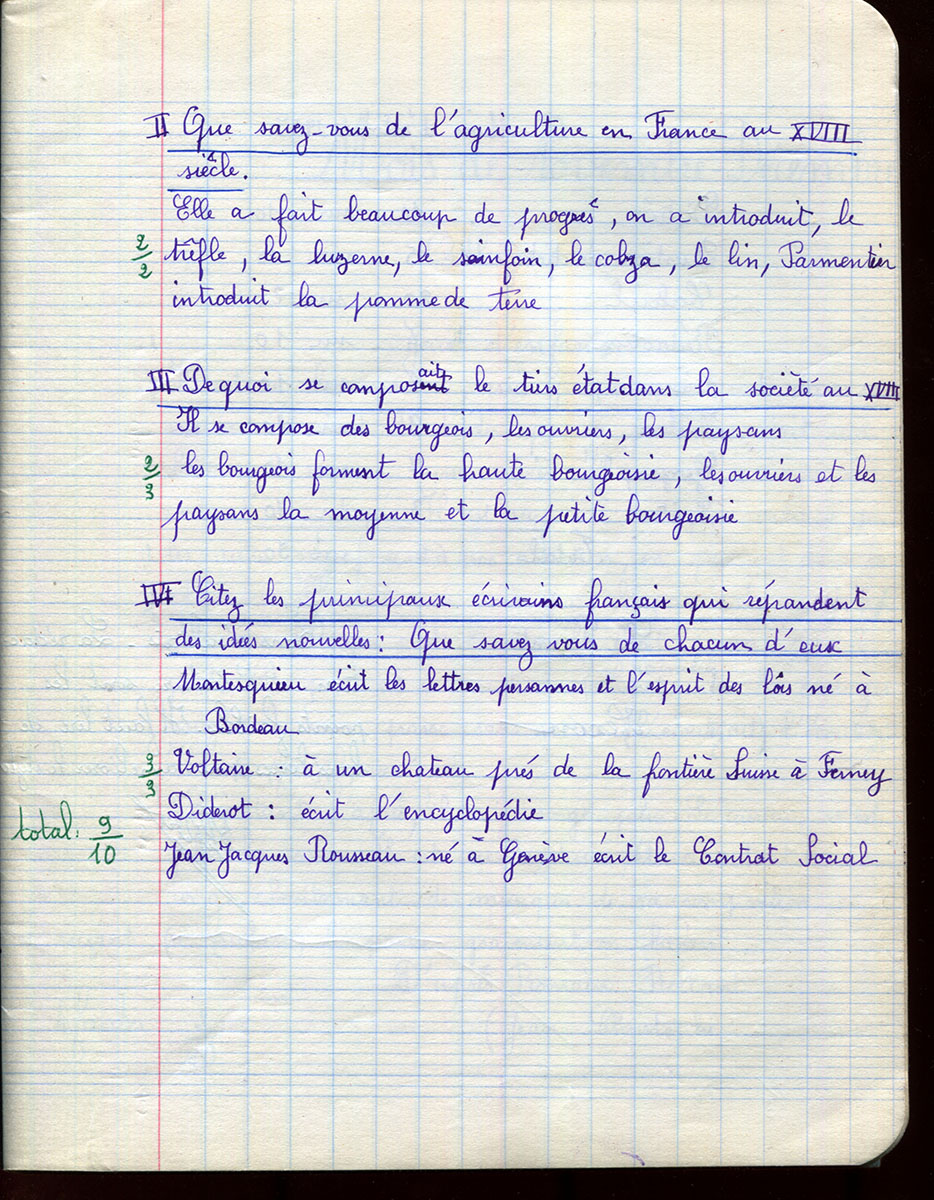 II Que savez-vous de l'agriculture en France au XVIII
siècle.
Elle a fait beaucoup de progrès, on a introduit, le
2/2 trêfle, la luzerne, le sainfoin, le colza, le lin, Parmentier
introduit la pomme de terre
III De quoi se composait le tiers état dans la société au XVIII
Il se compose des bourgeois, les ouvriers, les paysans
2/3 les bourgeois forment la haute bourgeoisie, les ouvriers et les
paysans la moyenne et la petite bourgeoisie
IV Citez les principaux écrivains français qui répandent
des idées nouvelles : Que savez vous de chacun d'eux
Montesquieu écrit les lettres persannes et l'esprit des lois né à
Bordeau
3/3 Voltaire : à un chateau prés de la frontière Suisse à Ferney
Diderot : écrit l'encyclopédie
total : 9/10 Jean Jacques Rousseau : né à Genève écrit le Contrat Social